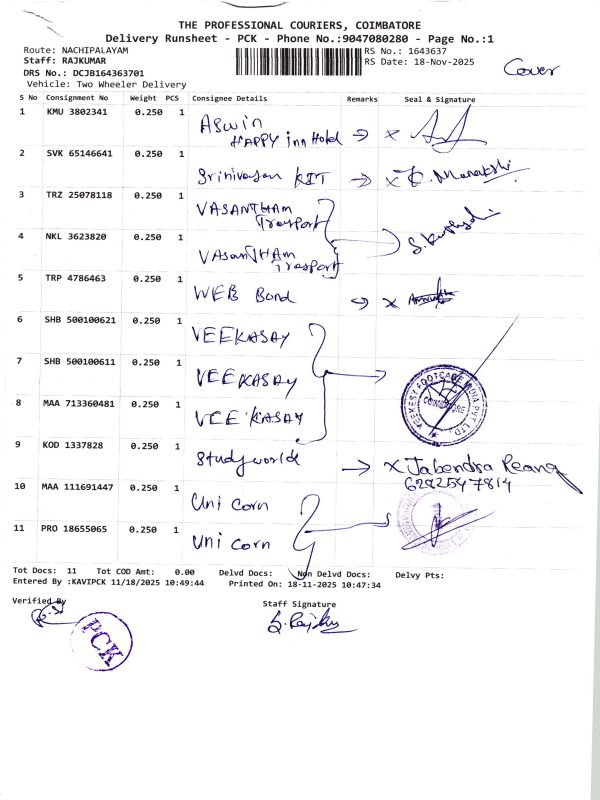 THE PROFESSIONAL COURIERS, COIMBATORE
Delivery Runsheet - PCK - Phone No.:9047080280 - Page No.:1
Route: NACHIPALAYAM RS No.: 1643637
Staff: RAJKUMAR RS Date: 18-Nov-2025
Cover
DRS No.: DCJB164363701
Vehicle: Two Wheeler Delivery
S No Consignment No Weight PCS Consignee Details Remarks Seal & Signature
1 KMU 3802341 0.250 1 Aswin
HAPPY inn Hotel
2 SVK 65146641 0.250 1 Srinivasan KIT
3 TRZ 25078118 0.250 1 VASANTHAM
Transport
4 NKL 3623820 0.250 1 VASANTHAM
Transport
5 TRP 4786463 0.250 1 WEB Bond
6 SHB 500100621 0.250 1 VEEKASAY
7 SHB 500100611 0.250 1 VEEKASAY
8 MAA 713360481 0.250 1 VEEKASAY
VEEKESY FOOTCARE INDIA PVT. LTD.
COIMBATORE
9 KOD 1337828 0.250 1 Studyworlde x Jabendra Reang
6282547814
10 MAA 111691447 0.250 1 Uni Corn
11 PRO 18655065 0.250 1 Uni Corn
Tot Docs: 11 Tot COD Amt: 0.00 Delvd Docs: Non Delvd Docs: Delvy Pts:
Entered By :KAVIPCK 11/18/2025 10:49:44 Printed On: 18-11-2025 10:47:34
Verified By Staff Signature
PCK